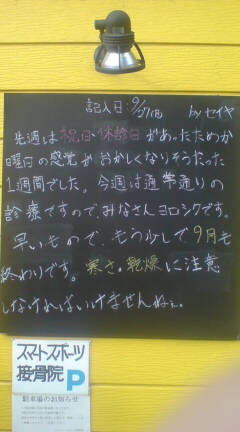 記入日:9/27(日) by セイヤ
先週は祝日・休診日があったためか
曜日の感覚がおかしくなりそうだった
1週間でした。今週は通常通りの
診療ですので、みなさんヨロシクです。
早いもので、もう少しで9月も
終わりです。寒さ。乾燥に注意
しなければいけませんねぇ。
スマートスポーツ
接骨院 P
駐車場のお知らせ